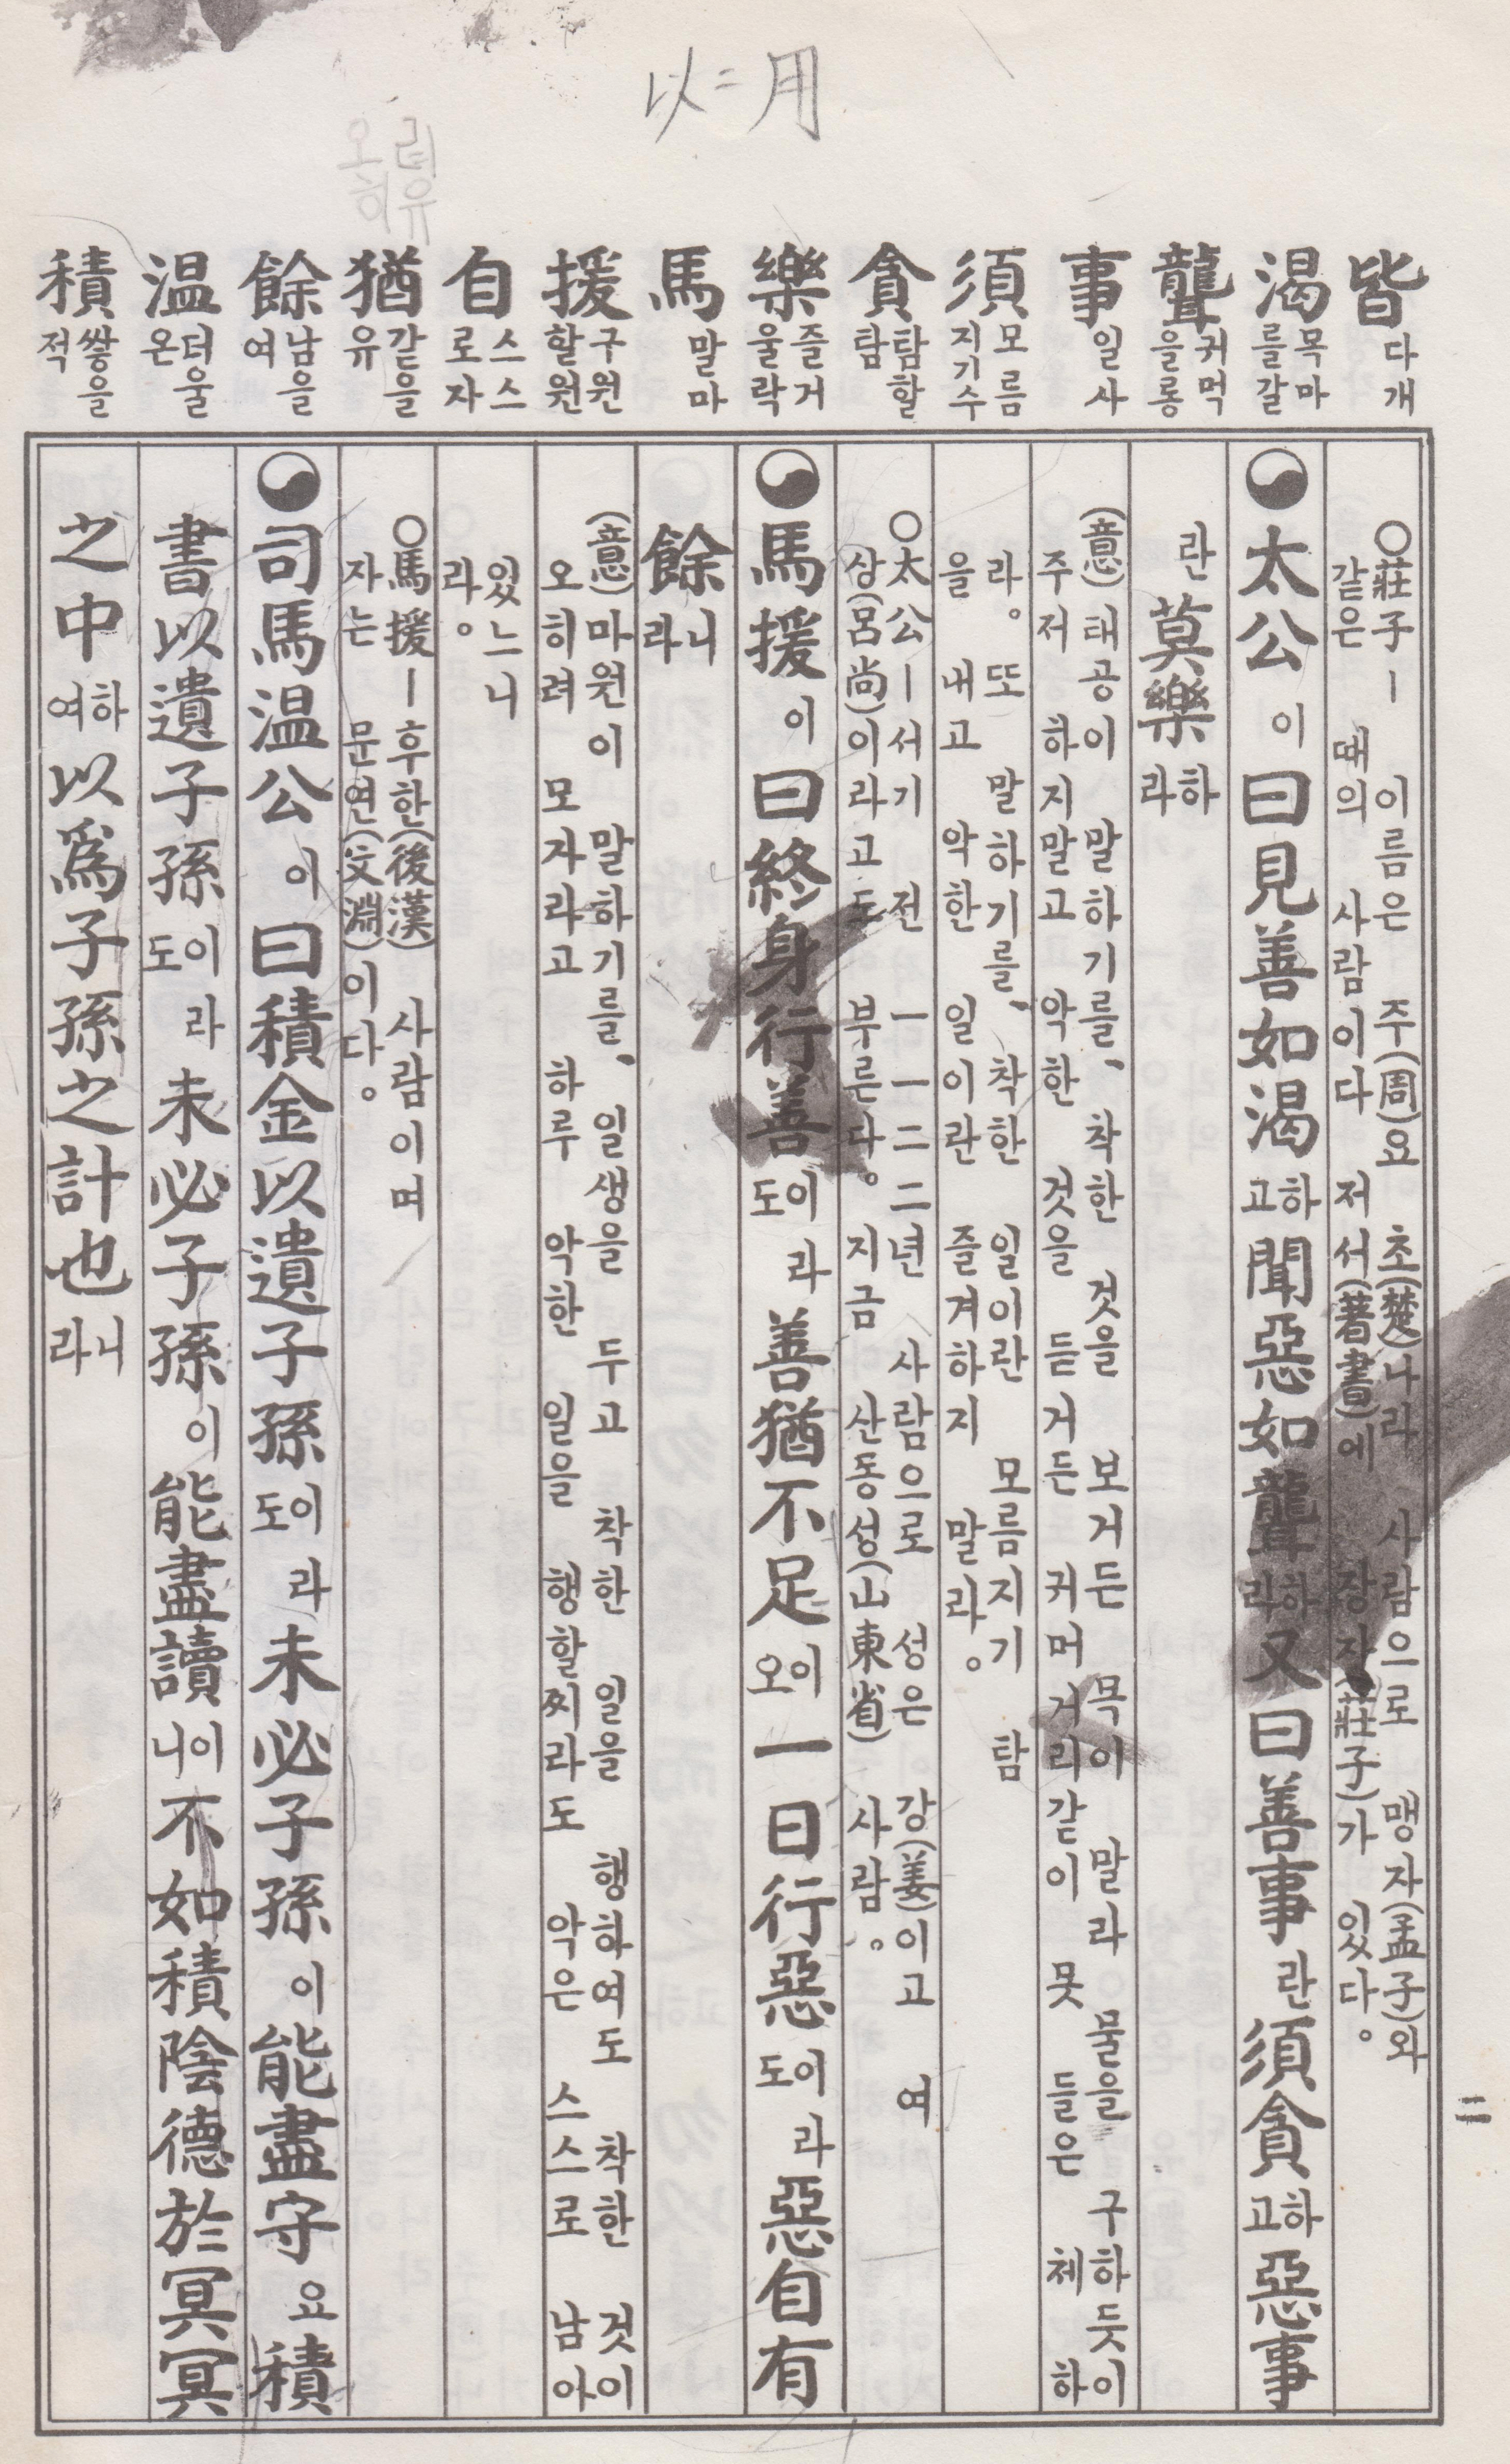 以=用
오히려유
皆 다개
渴 목마를갈
聾 귀먹을롱
事 일사
須 모름지기수
貪 탐할탐
樂 즐거울락
馬 말마
援 구원할원
自 스스로자
猶 같을유
餘 남을여
溫 더울온
積 쌓을적
○莊子ㅡ 이름은 주(周)요 초(楚)나라 사람으로 맹자(孟子)와
같은 때의 사람이다 저서(著書)에 장자(莊子)가 있다。
太公이 曰見善如渴하고 聞惡如聾하라 又曰善事란 須貪하고 惡事
란 莫樂하라
(意) 태공이 말하기를、착한 것을 보거든 목이 말라 물을 구하듯이
주저 하지말고 악한 것을 듣거든 귀머거리같이 못 들은 체 하
라。 또 말하기를、착한 일이란 모름지기 탐
을 내고 악한 일이란 즐겨하지 말라。
○太公ㅡ서기 전 一一二二년 사람으로 성은 강(姜)이고 여
상(呂尙)이라고도 부른다。 지금 산동성(山東省) 사람。
馬援이 曰終身行善이라도 善猶不足이오 一日行惡이라도 惡自有
餘니라
(意) 마원이 말하기를、일생을 두고 착한 일을 행하여도 착한 것이
오히려 모자라고 하루 악한 일을 행할찌라도 악은 스스로 남아
있느니
라。
○馬援ㅡ후한(後漢) 사람이며
자는 문연(文淵)이다。
司馬溫公이 曰積金以遺子孫이라도 未必子孫이 能盡守요 積
書以遺子孫이라도 未必子孫이 能盡讀이니 不如積陰德於冥冥
之中하여 以爲子孫之計也니라
二